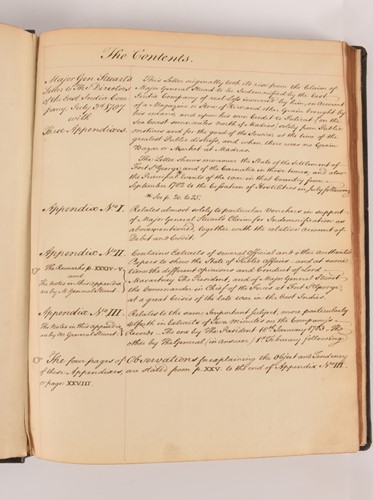 The Contents.
Major Gen. Stuart's
Letter to The Directors
of the East India Com
pany July 3d. 1787
with
Three Appendixes.
This Letter originally took its rise from the Claim of
Major General Stuart to be Indemnified by the East
India Company of real Loss incurred by him, on Account
of a Magazine or Store of Rice and other Grain brought by
his orders and upon his own Credit to Madras from
solely from Public
motives and for the good of the Service at the time of the
greatest Public distress, and when there was no Grain
Bazar or Market at Madras.
The Letter shews moreover the State of the Settlement of
Fort St. George, and of the Carnatic in those times, and also
the Principal Events of the war in that Country from
September 1782 to the Cessation of Hostilities in July following
* See p. 20. to 25.
Appendix No. I.
Relates almost solely to particular Vouchers in support
of Major General Stuarts Claim for Indemnification as
abovementioned, together with the relative Account of
Debit and Credit.
Appendix No. II.
The Remarks p. XXXIV-V
and
The Notes in this appendix
are by M. General Stuart
Contains Extracts of several Official and other Authentic
Papers to shew the State of Public Affairs and at same
time the different opinions and Conduct of Lord
Macartney The President, and of Major General Stuart
the Commander in Chief of the Forces at Fort St. George,
at a great Crisis of the late war in the East Indies.
Appendix No. III.
The Notes in this appendix
are by Mr. General Stuart
Relates to the same Important Subject, more particularly
set forth in Extracts of Two Minutes on the Company's
Records. The one by The President 10th. January 1783. The
other by The General (in Answer) 1st. February following
The four pages of Observations for explaining the Object and Tendency
of these Appendixes, are stated from p. XXV. to the end of Appendix No. III
or page XXVIII.